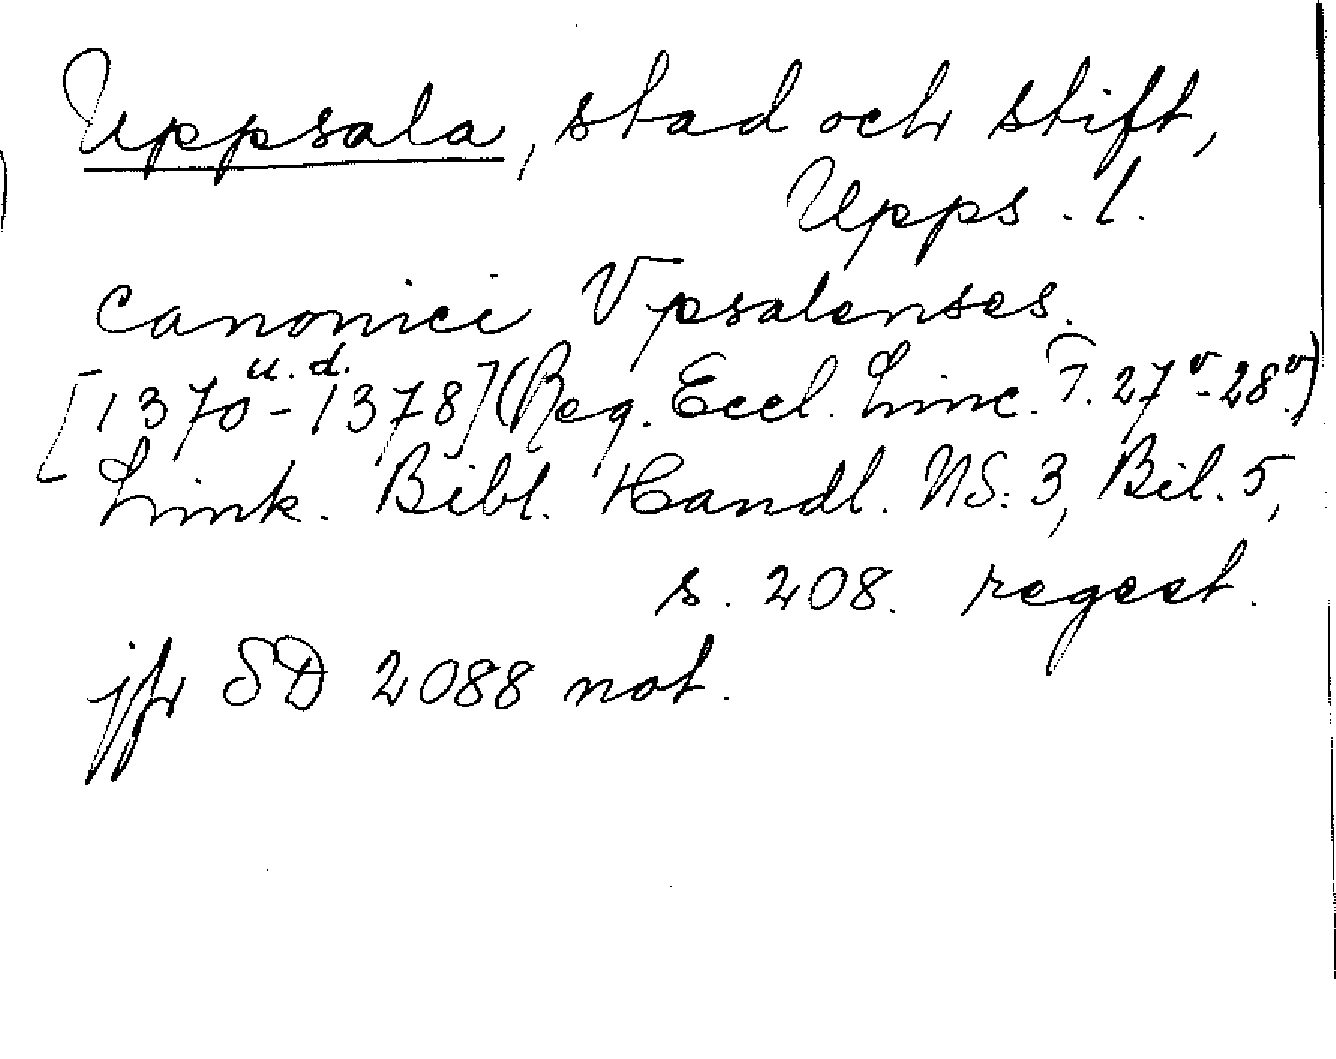 Uppsala, stad och stift,
Upps. l.
canonici Vpsalenses.
u. d.
[1370-1378] (Reg. Eccl. Linc. f. 27v-28v)
Link. Bibl. Handl. NS. 3, Bil. 5,
s. 208. regest.
jfr SD 2088 not.